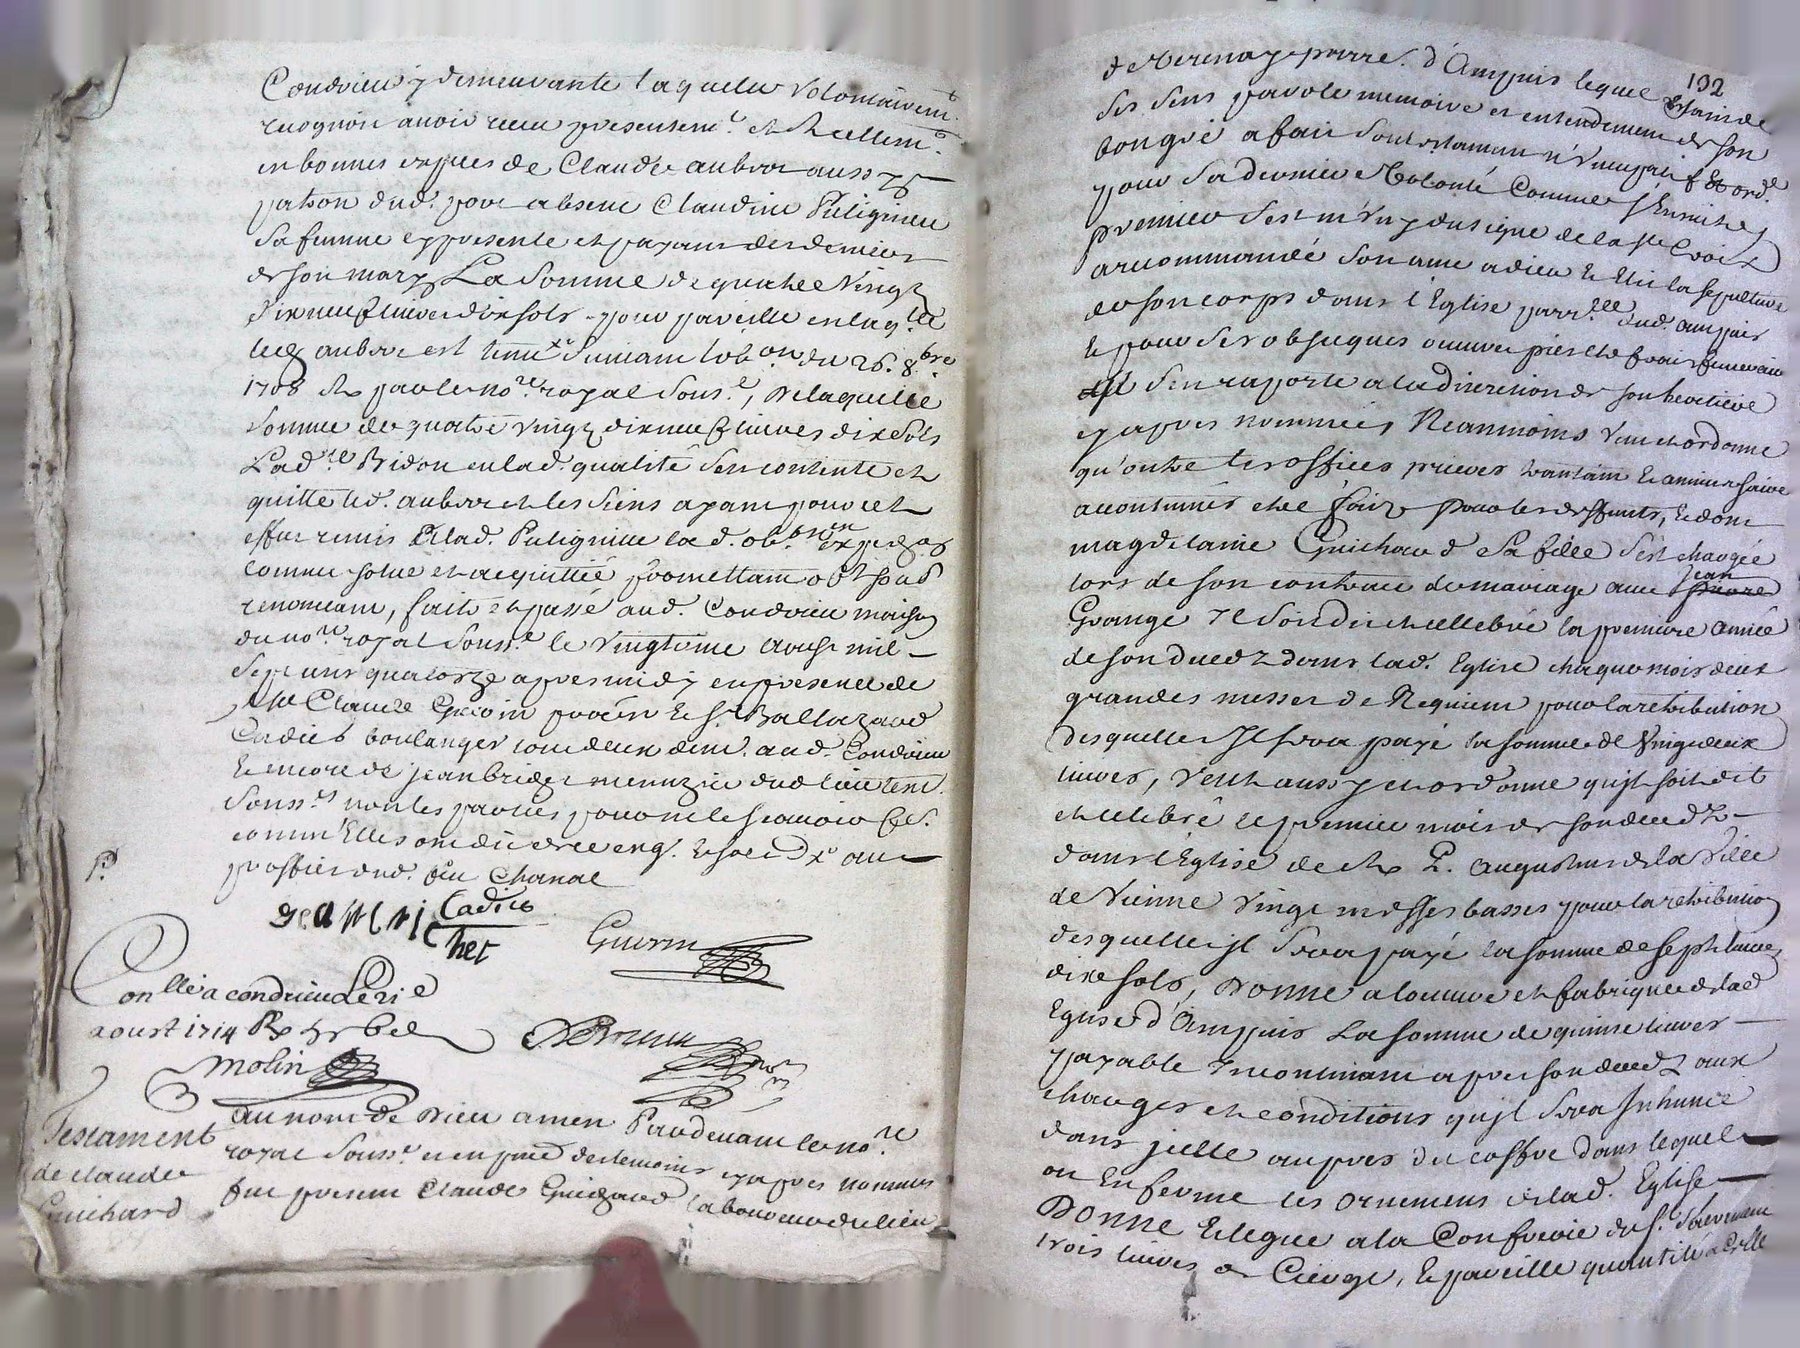 Condrieu y demeurante laquelle volontairemt
recognoit avoir receu presentemt et reellemt
en bonnes espèces de Claude aubror aussy
patron dud. pour absent Claudine Putignieu
sa femme cy presente et payant des deniers
de son mary La Somme de quatre Vingt
dix neuf livres dix sols pour pareille en laqlle
led aubror est tenu suivant lobon du 26. 8bre
1708 Rx par le nore royal souse, De laquelle
somme de quatre vingt dix neuf livres dix sols
Lade Bidon en lad. qualité sen contente et
quitte led. aubror et les siens ayant pour cet
effet remis a lad. Putignieu la d. obon expedge
comme solue et acquittée promettant obt soub
renonceant, fait et passé aud. Condrieu maison
du nore royal souse le Vingtme aoust mil
Sept cens quatorze apres midy en presence de
Me Claude Guerin procr & sr Baltazard
Cadier boulanger tous deux demt aud. Condrieu
& encore de jean brider menuzier dud lieu tem.
Souss. non les parties pour ne le scavoir
comm'Elles ont dit de ce enq. &
proffit dud. feu Chanal
P.
Cadier
Guerin
Conlle a condrieu le 21e
aoust 1714 Rx
Molin
Testament
de claude
Guichard
au nom de Dieu amen Pardevant le nore
royal souse et en pnce des temoins cy apres nommes
fut present Claude Guichard laboureur du lieu
192
de Verenay parre d'Ampuis lequel estain de
ses sens parole memoire et entendement de son
bon gré a fait son testament n'vncupatif & ordce
pour sa derniere Volonté Comme s'Ensuit
premier s'est m'vny du signe de la ste Croix
a recommandé son ame a dieu & Elit la sepulture
de son corps dans l'Eglise parrlle dud. ampuis
& pour ses obseques oeuvres pies et frais funeraires
il s'en raporte a la discretion de son heritiere
cy apres nommée, Neanmoins veut et ordonne
qu'outre les offices prieres trantain & anniversaire
acoutumés etre faits pour les deffunts, & dont
magdelaine Guichard sa fille s'est chargée
lors de son contract de mariage avec jean
Grange Il soit dit et cellebré la premiere année
de son decedz dans lad. Eglise chaque mois deux
grandes messes de Requiem pour la retribution
desquelles Il sera payé la somme de vingt deux
livres, Veut aussy et ordonne qu'jl soit dit
et celebré le premier mois de son decedz
dans l'Eglise de Rx P. Augustins de la Ville
de Vienne Vingt messes basses pour la retribution
desquelles jl sera payé la somme de sept livres
dixe sols, Donne a loeuvre et fabrique de lad
Eglise d'Ampuis La somme de quinze livres
payable Incontinant apres son decedz aux
charges et conditions qu'jl sera Inhumé
dans jcelle aupres du coffre dans lequel
on Enferme les ornemens de lad. Eglise
Donne & legue a la Confrerie du st. Sacrement
trois livres de Cierge, & pareille quantité a Celle